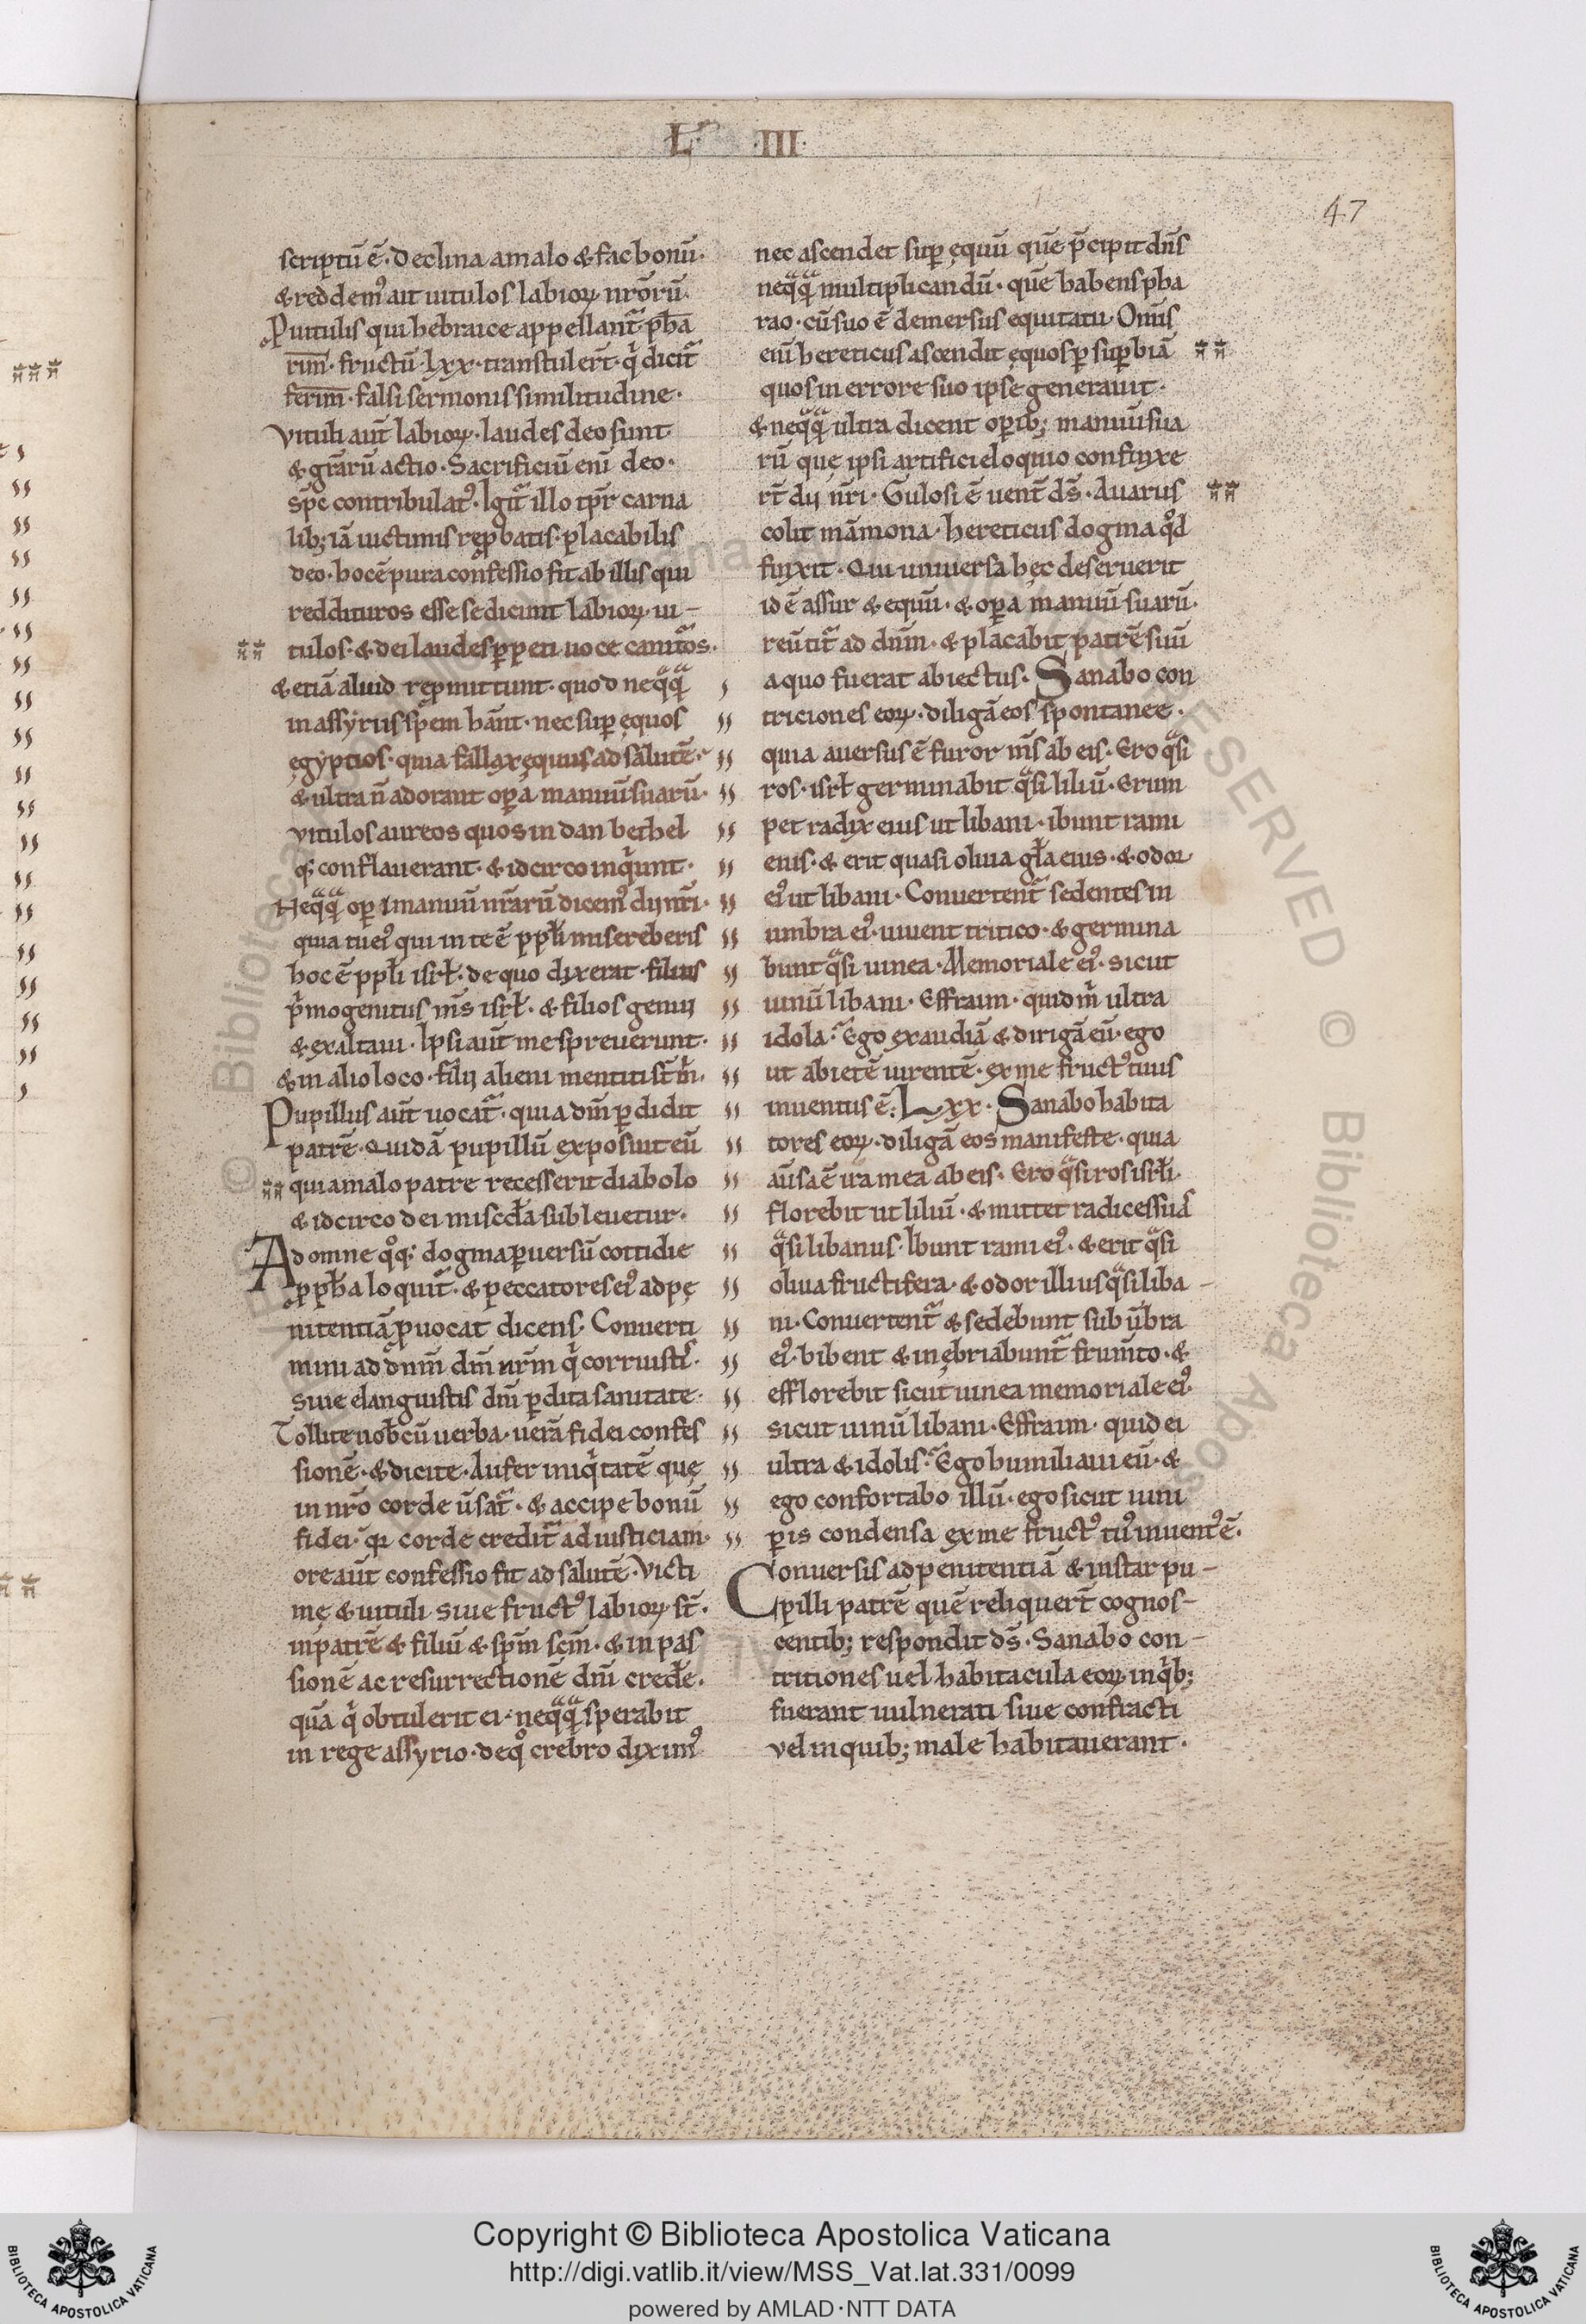 L III
47
scriptū ē. Declina a malo & fac bonū.
& reddem᷒ ait uitulos labioꝝ nr̄orū.
Ꝓ uitulis qui hebraice appellant᷑ pha
rim̄. fructū. lxx. transtulert̄. q̇ dicit᷑
ferim̄. falsi sermonis similitudine.
Vituli aut̄ labioꝝ. laudes deo sunt
& gr̄arū actio. Sacrificiū eni deo.
sp̄c contribulat᷒. Igit᷑ illo tp̄r carna
lib; iā uictimis reꝓbatis. placabilis
deo. hoc ē pura confessio fit ab illis qui
reddituros esse se dicunt labioꝝ ui-
tulos. & dei laudes ꝑpeti uoce canit᷑os.
& etiā aliud reꝓmittunt. quod neqͣqͣ
in assyriis spem hān̄t. nec suꝑ ęquos
ęgyptios. quia fallax ęquus ad salutē.
& ultra n̄ adorant oꝑa manuū suarū.
vitulos aureos quos in dan bethel
q; conflauerant. & idcirco inq̇unt.
Neqͣqͣ oꝑi manuū nr̄arū dicem᷒ dij nr̄i.
quia tu ei᷒ qui in te ē ppl̄i misereberis
hoc ē ppl̄i isrl̄. de quo dixerat. filius
ṗmogenitus m̄s isrl̄. & filios genui
& exaltaui. Ipsi aut̄ me spreuerunt.
& in alio loco. filij alieni mentiti st̄ ṁ.
Pupillus aut̄ uocat᷑. quia dm̄ ꝑdidit
patrē. Quidā pupillū exposuit eū
qui a malo patre recesserit diabolo
& idcirco dei misc̄dia subleuetur.
Ad omne qͦq; dogma ꝑuersū cottidie
ꝓph̄a loquit᷑. & peccatores ei᷒ ad pę
nitentiā ꝓuocat dicens. Conuerti
mini ad dnm̄ dm̄ nrm̄ q̇ corruistis.
siue elanguistis dm̄ ꝑdita sanitate.
Tollite uob̄cū uerba. uerā fidei confes
sionē. & dicite. Aufer iniq̇tatē quę
in nr̄o corde u̅sat᷑. & accipe bonū
fidei. qꝛ corde credit᷑ ad iusticiam.
ore aut̄ confessio fit ad salutē. Victi
mę & uituli siue fruct᷒ labioꝝ st̄.
in patrē & filiū & spm̄ scm̄. & in pas
sionē ac resurrectionē dm̄ cred̄e.
quā q̇ obtulerit ei. neqͣqͣ sperabit
in rege assyrio. de qͦ crebro dixim᷒
nec ascendet suꝑ ęquū quē p̄cipit dn̄s
neqͣqͣ multiplicandū. quē habens pha
rao. cū suo ē demersus equitatu. Omīs
eni hereticus ascendit ęquos ꝑ suꝑbiā
quos in errore suo ipse generauit.
& neqͣqͣ ultra dicent oꝑib; manuū sua
rū que ipsi artifici eloquio confinxe
rt̄ dij nr̄i. Gulosi ē uent̄ ds̄. Auarus
colit māmona. hereticus dogma qͦd
finxit. Qui uniuersa hęc deseruerit
id ē assur & equū. & oꝑa manuū suarū.
reūtit᷑ ad dnm̄. & placabit patrē suū
a quo fuerat abiectus. Sanabo con
triciones eoꝝ. diligā eos spontanee.
quia auersus ē furor m̄s ab eis. Ero qͣsi
ros. isrl̄ germinabit qͣsi liliū. Erum
pet radix eius ut libani. ibunt rami
eius. & erit quasi oliua gl̄a eius. & odor
ei᷒ ut libani. Conuertent᷑ sedentes in
umbra ei᷒. uiuent tritico. & germina
bunt qͣsi uinea. Memoriale ei᷒. sicut
uinū libani. Effraim. quid ṁ ultra
idola. Ego exaudiā & dirigā eū. ego
ut abietē uirentē. ex me fruct᷒ tuus
inuentus ē. Lxx. Sanabo habita
tores eoꝝ. diligā eos manifeste. quia
au̅sa ē ira mea ab eis. Ero qͣsi ros isrl̄i.
florebit ut liliū. & mittet radices suas
qͣsi libanus. Ibunt rami ei᷒. & erit qͣsi
oliua fructifera. & odor illius qͣsi liba-
ni. Conuertent᷑ & sedebunt sub ūbra
ei᷒. bibent & inębriabunt᷑ frum̄to. &
efflorebit sicut uinea memoriale ei᷒.
sicut uinū libani. Effraim. quid ei
ultra & idolis. Ego humiliaui eū. &
ego confortabo illū. ego sicut iuni
ꝑis condensa ex me fruct᷒ tu᷒ inuent᷒ ē.
Conuersis ad penitentiā & instar pu-
pilli patrē quē reliquert̄ cognos-
centib; respondit ds̄. Sanabo con-
tritiones uel habitacula eoꝝ in q̇b;
fuerant uulnerati siue confracti
vel in quib; male habitauerant.
© Biblioteca Apostolica Vaticana
Copyright © Biblioteca Apostolica Vaticana
http://digi.vatlib.it/view/MSS_Vat.lat.331/0099
powered by AMLAD·NTT DATA
BIBLIOTECA APOSTOLICA VATICANA
BIBLIOTECA APOSTOLICA VATICANA